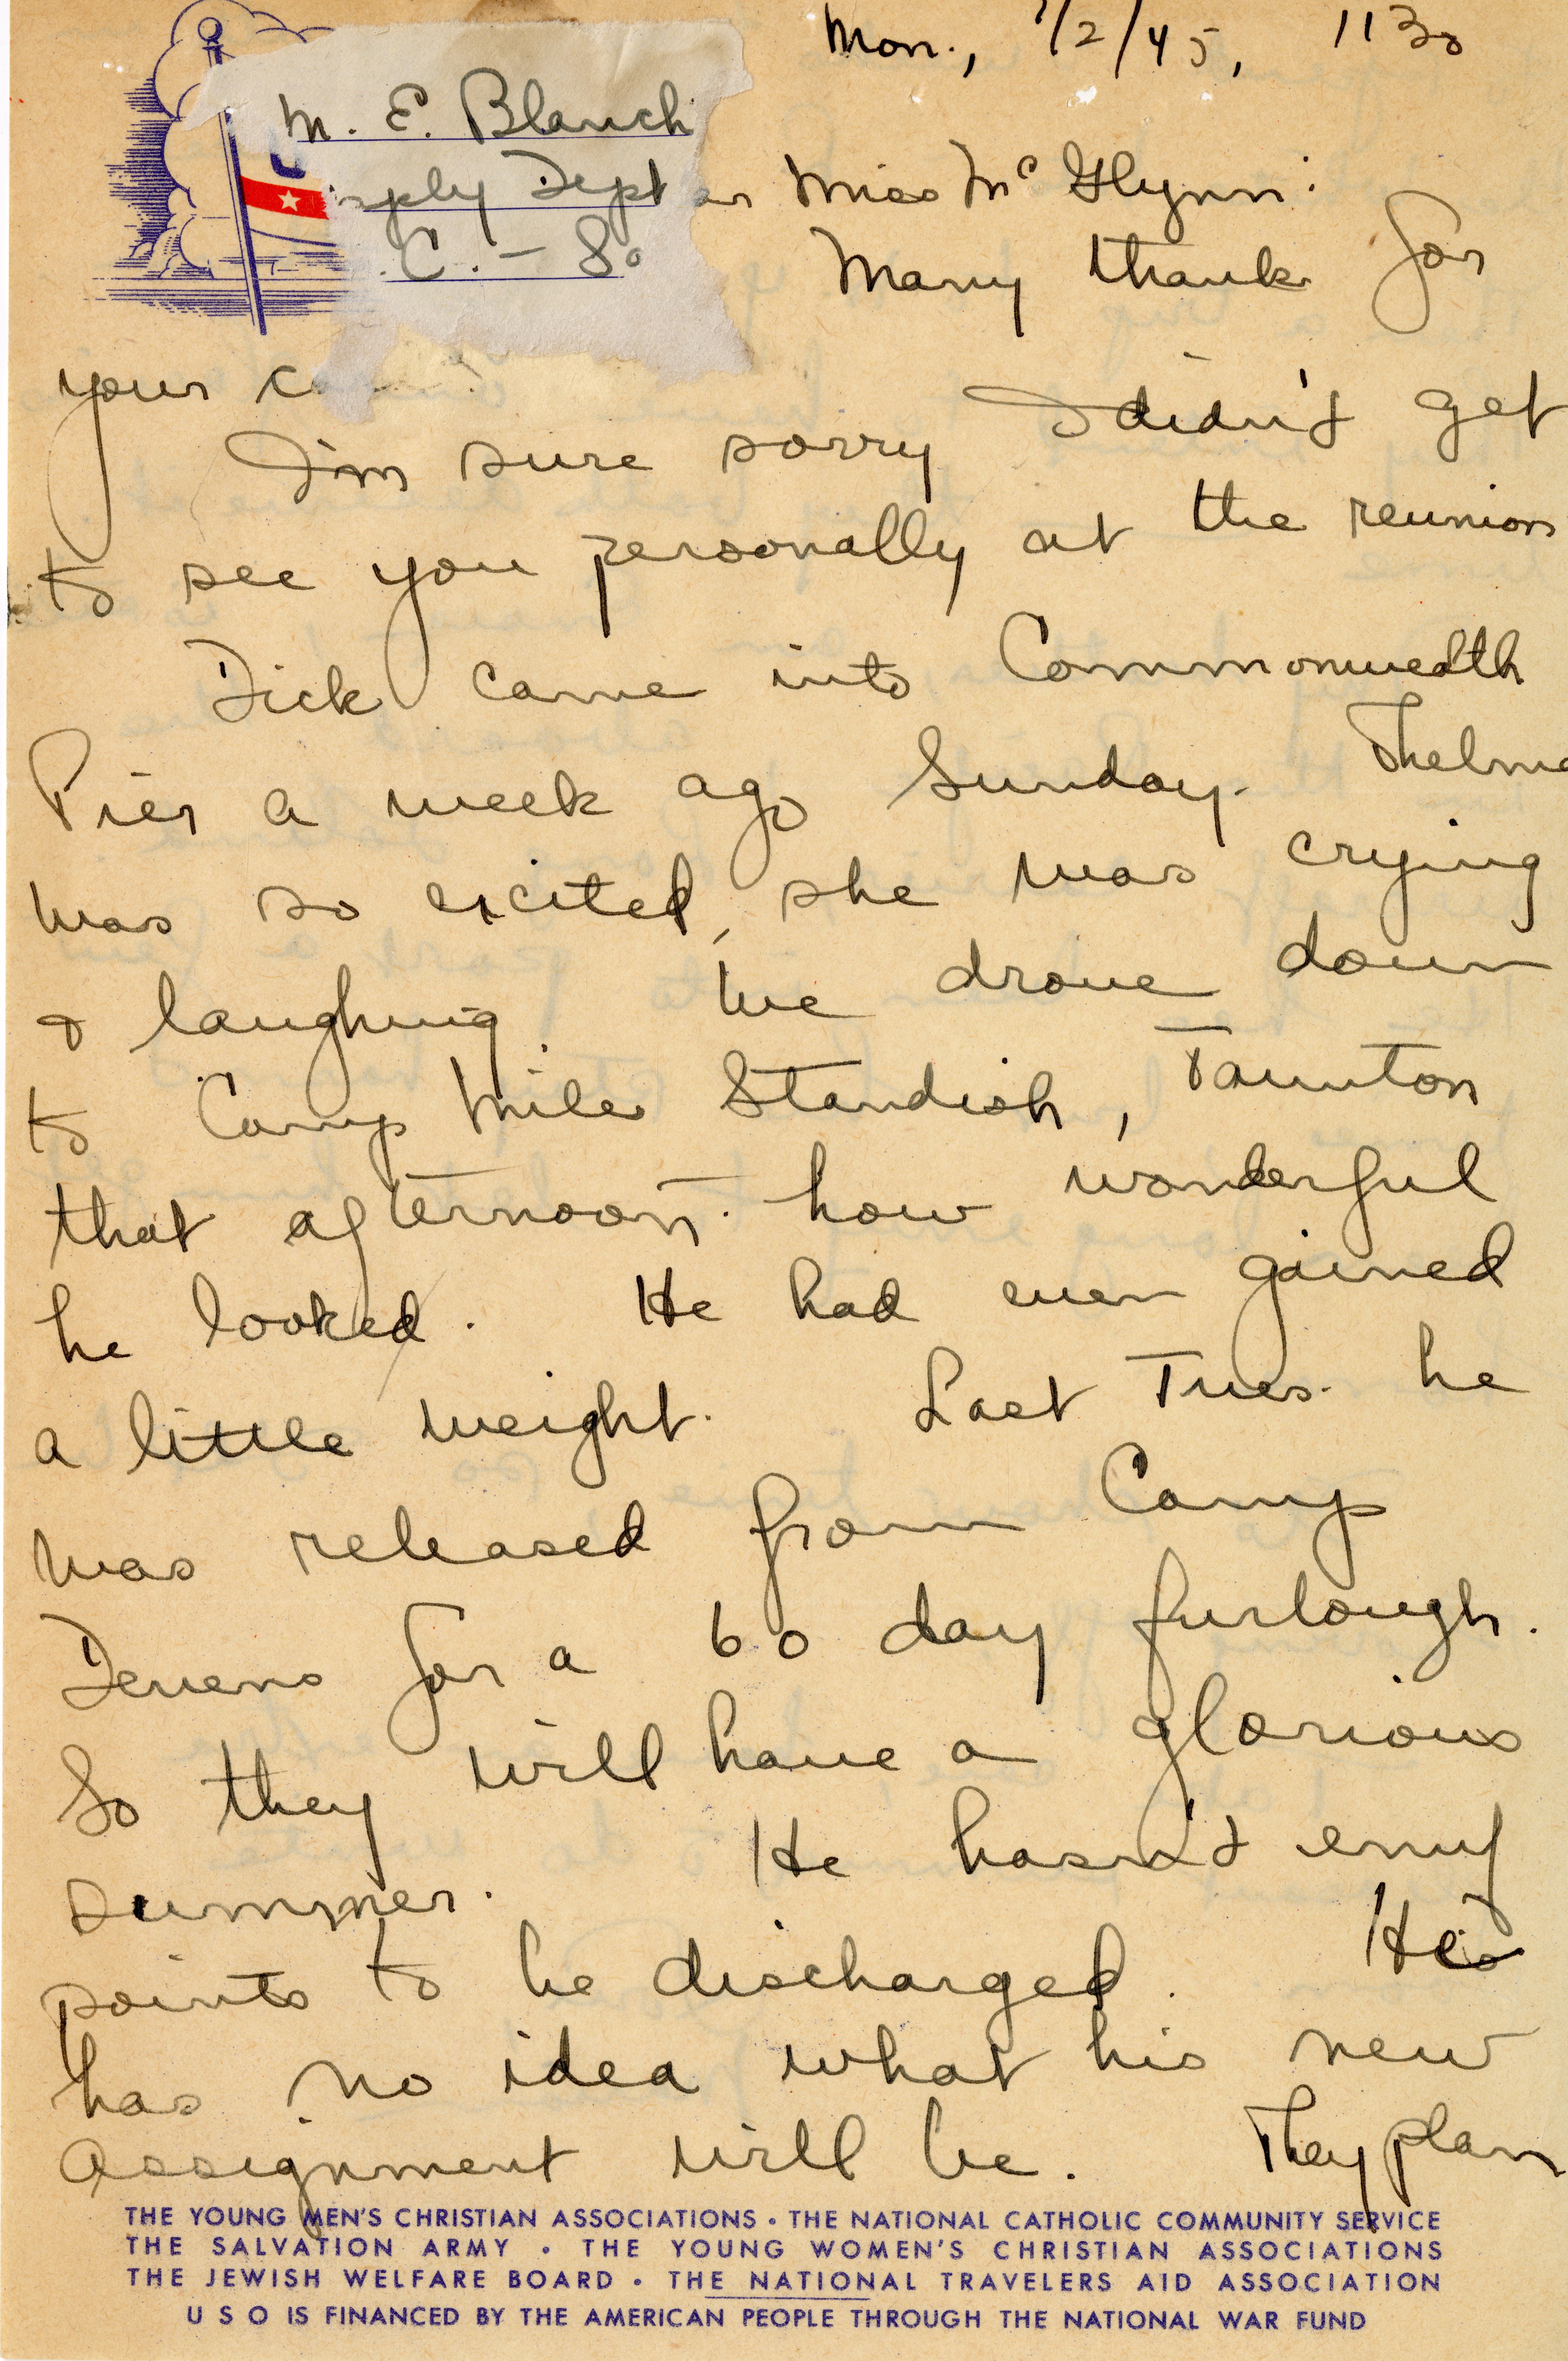 Mon., 7/2/45, 1130
M. E. Blanch
pply Dept
C. - So
Miss McGlynn:
Many thanks for
your
I'm sure sorry I didn't get
to see you personally at the reunion
Dick came into Commonwealth
Pier a week ago Sunday. Thelma
was so excited, she was crying
& laughing. We drove down
to Camp Miles Standish, Taunton
that afternoon. how wonderful
he looked. He had even gained
a little weight. Last Tues. he
was released from Camp
Devens for a 60 day furlough.
So they will have a glorious
summer. He hasn't enuf
points to be discharged. He
has no idea what his new
assignment will be. They plan
THE YOUNG MEN'S CHRISTIAN ASSOCIATIONS • THE NATIONAL CATHOLIC COMMUNITY SERVICE
THE SALVATION ARMY • THE YOUNG WOMEN'S CHRISTIAN ASSOCIATIONS
THE JEWISH WELFARE BOARD • THE NATIONAL TRAVELERS AID ASSOCIATION
U S O IS FINANCED BY THE AMERICAN PEOPLE THROUGH THE NATIONAL WAR FUND